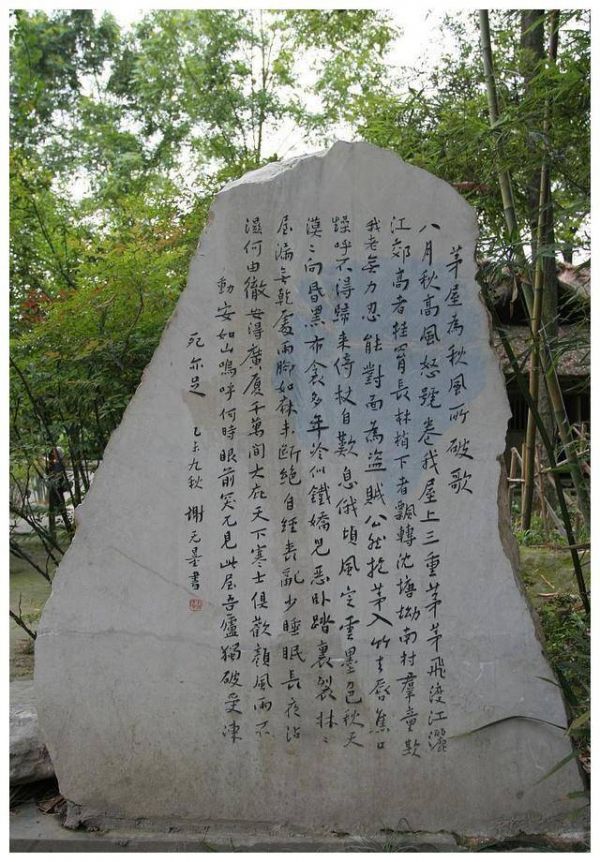 茅屋為秋風所破歌
八月秋高風怒號卷我屋上三重茅茅飛渡江灑
江郊高者挂罥長林梢下者飄轉沈塘坳南村羣童欺
我老無力忍能對面為盜賊公然抱茅入竹去唇焦口
燥呼不得歸來倚杖自歎息俄頃風定雲墨色秋天
漠〻向昏黑布衾多年冷似鐵嬌兒惡卧踏裏裂牀〻
屋漏無乾處雨腳如麻未斷絕自經喪亂少睡眠長夜沾
溼何由徹安得廣厦千萬間大庇天下寒士俱歡顏風雨不
動安如山嗚呼何時眼前突兀見此屋吾廬獨破受凍
死亦足 乙未九秋 謝无量書